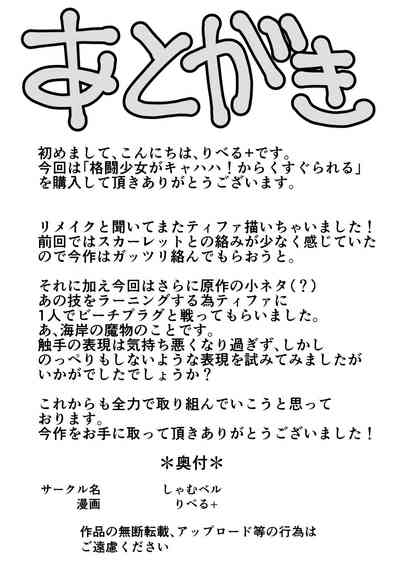 あとがき
初めまして、こんにちは、りべる+です。
今回は「格闘少女がキャハハ！からくすぐられる」
を購入して頂きありがとうございます。
リメイクと聞いてまたティファ描いちゃいました！
前回ではスカーレットとの絡みが少なく感じていた
ので今作はガッツリ絡んでもらおうと。
それに加え今回はさらに原作の小ネタ(？)
あの技をラーニングする為ティファに
1人でビーチプラグと戦ってもらいました。
あ、海岸の魔物のことです。
触手の表現は気持ち悪くなり過ぎず、しかし
のっぺりもしないような表現を試みてみましたが
いかがでしたでしょうか？
これからも全力で取り組んでいこうと思って
おります。
今作をお手に取って頂きありがとうございました！
＊奥付＊
サークル名　しゃむベル
漫画　りべる+
作品の無断転載、アップロード等の行為は
ご遠慮ください